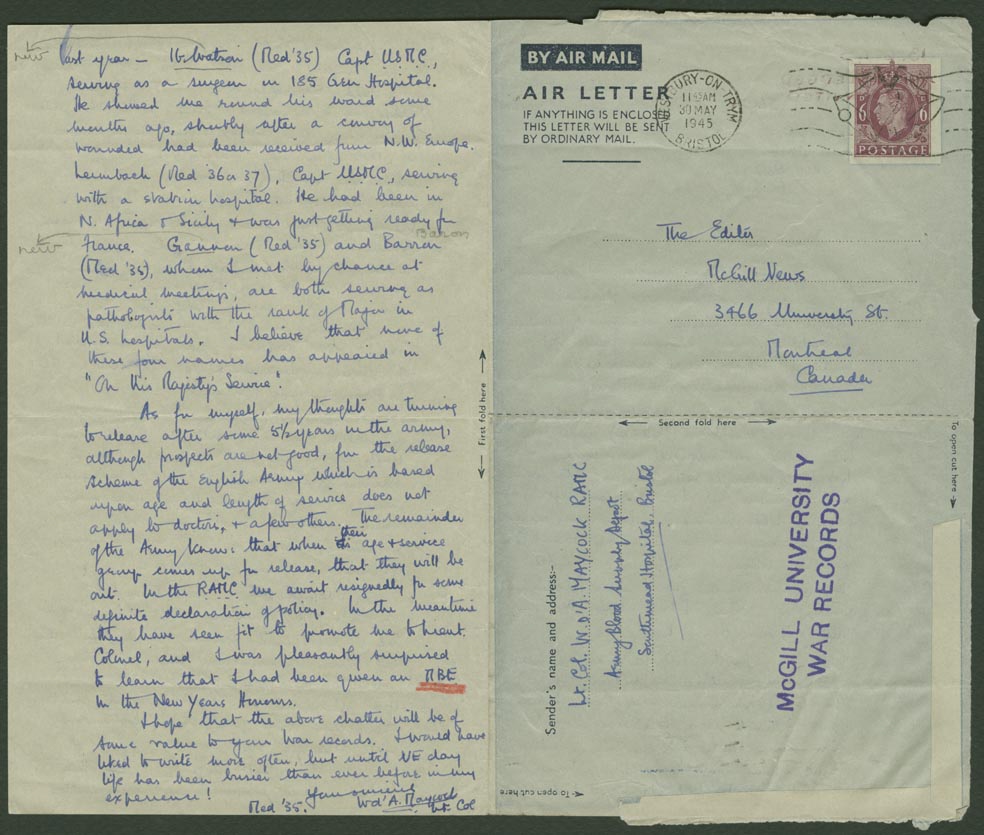 new
last year – H. Watson (Med '35) Capt USMC,
serving as a surgeon in 185 Gen Hospital.
He showed me round his ward some
months ago, shortly after a convoy of
wounded had been received from N.W. Europe.
Leimbach (Med 36 or 37), Capt USMC, serving
with a station hospital. He had been in
N. Africa & Sicily & was just getting ready for
new
Baron
France. Gannon (Med '35) and Barron
(Med '35), whom I met by chance at
medical meetings, are both serving as
pathologists with the rank of Major in
U.S. hospitals. I believe that none of
these four names has appeared in
"On His Majesty's Service".
As for myself, my thoughts are turning
to release after some 5½ years in the army,
although prospects are not good, for the release
scheme of the English Army which is based
upon age and length of service does not
apply to doctors, & a few others. The remainder
of the Army knows that when their age & service
group comes up for release, that they will be
out. In the RAMC we await resignedly for some
definite declaration of policy. In the meantime
they have seen fit to promote me to Lieut.
Colonel, and I was pleasantly surprised
to learn that I had been given an MBE
in the New Years Honours.
I hope that the above chatter will be of
some value to your War records. I would have
liked to write more often, but until VE day
life has been busier than ever before in my
experience!
Yours sincerely
Med '35. W d'A. Maycock
Lt. Col
First fold here
BY AIR MAIL
AIR LETTER
IF ANYTHING IS ENCLOSED
THIS LETTER WILL BE SENT
BY ORDINARY MAIL.
WESTBURY-ON-TRYM
11 AM
30 MAY
1945
BRISTOL
6 D
POSTAGE
The Editor
McGill News
3466 University St.
Montreal
Canada
Second fold here
To open cut here
Sender's name and address:-
Lt. Col. W. d'A. MAYCOCK RAMC
Army Blood Supply Depot
Southmead Hospital, Bristol
McGILL UNIVERSITY
WAR RECORDS
To open cut here